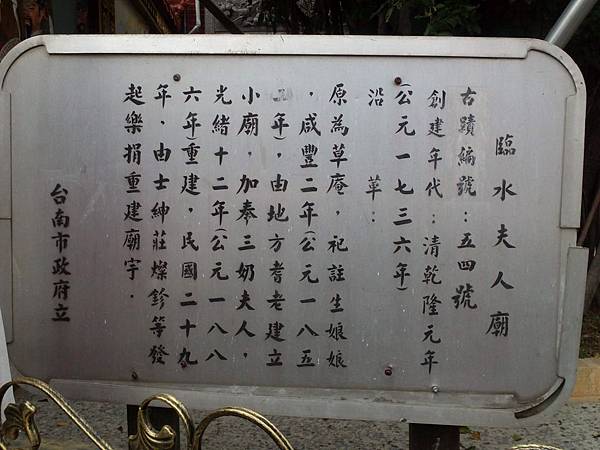 臨水夫人廟
古蹟編號：五四號
創建年代：清乾隆元年
(公元一七三六年)
沿革：
原為草庵，祀註生娘娘
，咸豐二年(公元一八五
二年)，由地方耆老建立
小廟，加奉三奶夫人，
光緒十二年(公元一八八
六年)重建，民國二十九
年，由士紳莊燦鉁等發
起樂捐重建廟宇．
台南市政府立